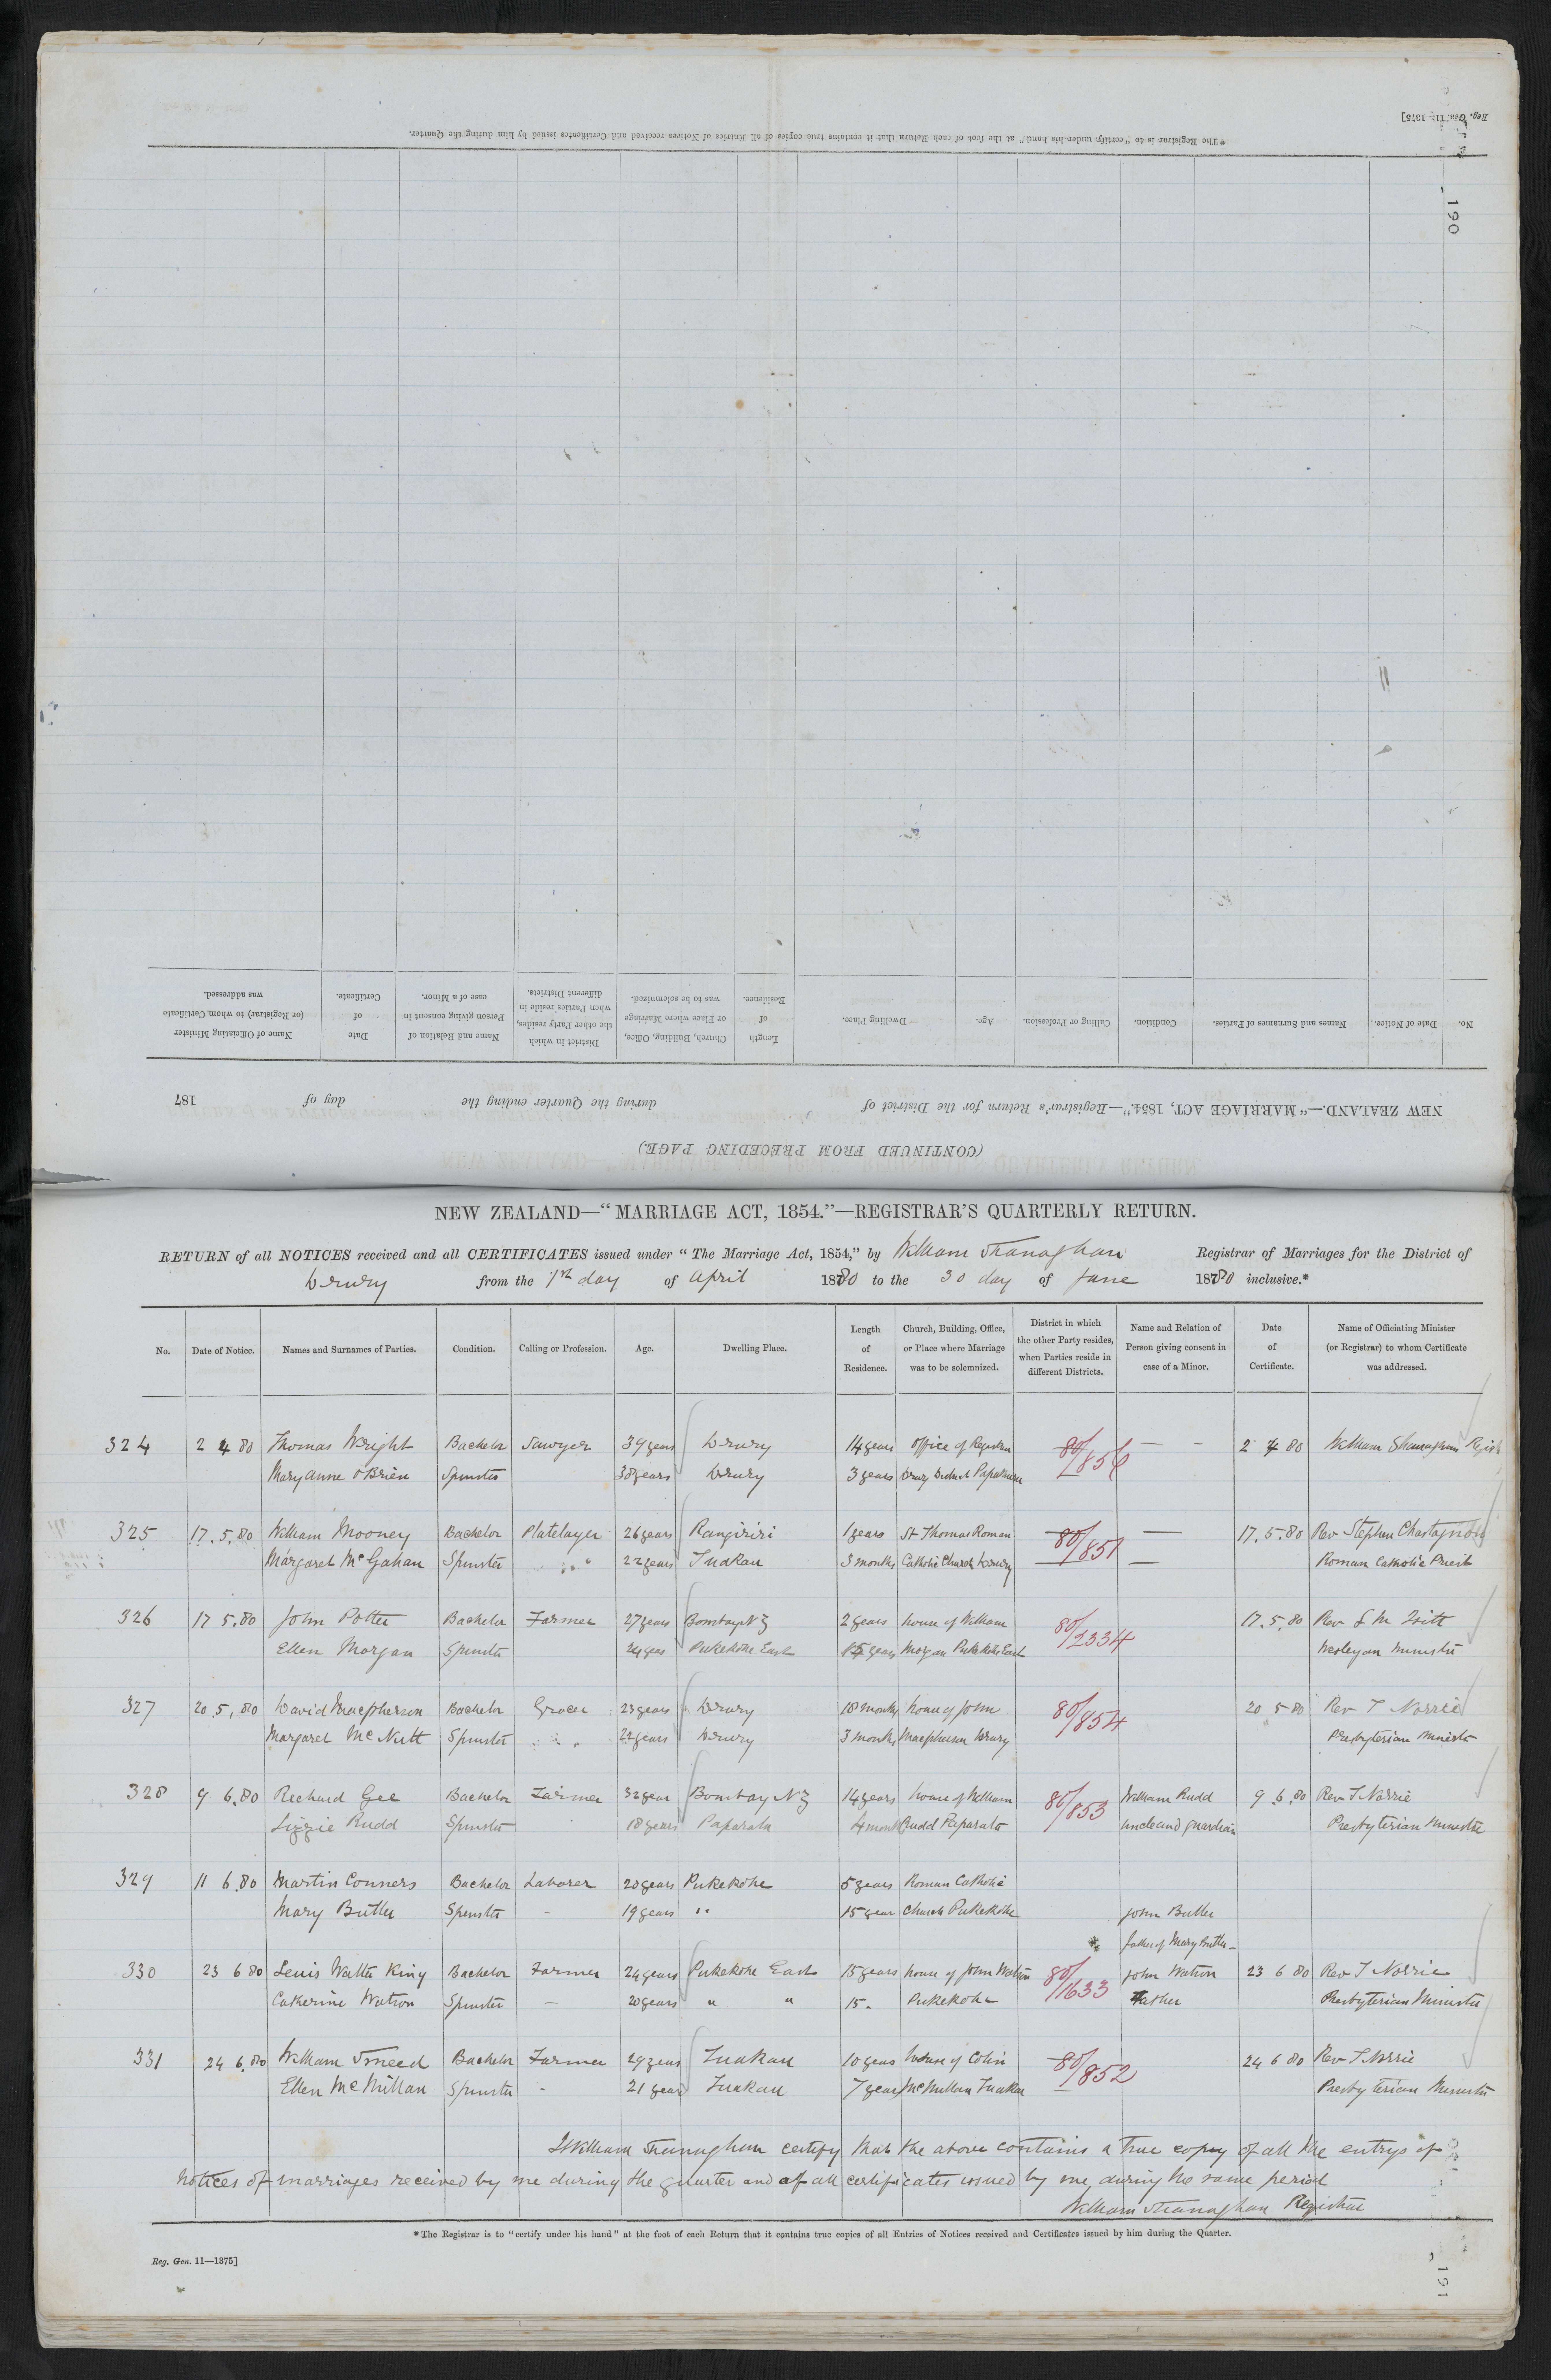 Reg. Gen. 11—1375]
* The Registrar is to "certify under his hand" at the foot of each Return that it contains true copies of all Entries of Notices received and Certificates issued by him during the Quarter.
190
(CONTINUED FROM PRECEDING PAGE.)
NEW ZEALAND.—"MARRIAGE ACT, 1854."—Registrar's Return for the District of during the Quarter ending the day of 187
No. Date of Notice. Names and Surnames of Parties. Condition. Calling or Profession. Age. Dwelling Place. Length of Residence. Church, Building, Office, or Place where Marriage was to be solemnized. District in which the other Party resides, when Parties reside in different Districts. Name and Relation of Person giving consent in case of a Minor. Date of Certificate. Name of Officiating Minister (or Registrar) to whom Certificate was addressed.
NEW ZEALAND—"MARRIAGE ACT, 1854."—REGISTRAR'S QUARTERLY RETURN.
RETURN of all NOTICES received and all CERTIFICATES issued under "The Marriage Act, 1854," by William Shanaghan Registrar of Marriages for the District of
Drury from the 1st day of April 1880 to the 30 day of June 1880 inclusive.*
No. Date of Notice. Names and Surnames of Parties. Condition. Calling or Profession. Age. Dwelling Place. Length of Residence. Church, Building, Office, or Place where Marriage was to be solemnized. District in which the other Party resides, when Parties reside in different Districts. Name and Relation of Person giving consent in case of a Minor. Date of Certificate. Name of Officiating Minister (or Registrar) to whom Certificate was addressed.
324 2 4 80 Thomas Wright Bachelor Sawyer 39 years Drury 14 years Office of Registrar 80/856 — — 2 4 80 William Shanaghan Regist
Mary Anne O'Brien Spinster 38 years Drury 3 years Drury District Papakura
325 17.5.80 William Mooney Bachelor Platelayer 26 years Rangiriri 1 years St Thomas Roman 80/851 — 17.5.80 Rev Stephen Chastagnon
Margaret McGahan Spinster " 22 years Tuakau 3 months Catholic Church Drury — Roman Catholic Priest
326 17 5.80 John Potter Bachelor Farmer 27 years Bombay NZ 2 years house of William 80/2334 17.5.80 Rev
Ellen Morgan Spinster 24 years Pukekohe East 15 years Morgan Pukekohe East Wesleyan Minister
327 20.5.80 David Macpherson Bachelor Grocer 23 years Drury 18 months house of John 80/854 20 5 80 Rev T Norrie
Margaret McNutt Spinster " 22 years Drury 3 months Macpherson Drury Presbyterian Minister
328 9 6.80 Richard Gee Bachelor Farmer 32 year Bombay NZ 14 years house of William 80/853 William Rudd 9 6.80 Rev T Norrie
Lizzie Rudd Spinster 18 years Paparata 4 month Rudd Paparata uncle and guardian Presbyterian Minister
329 11 6.80 Martin Conners Bachelor Laborer 20 years Pukekohe 5 years Roman Catholic
Mary Butler Spinster - 19 years " 15 year Church Pukekohe John Butler
father of Mary Butler —
330 23 6 80 Lewis Walter King Bachelor Farmer 24 years Pukekohe East 15 years house of John Watson 80/1633 John Watson 23 6 80 Rev T Norrie
Catherine Watson Spinster — 20 years " " 15. Pukekohe Father Presbyterian Minister
331 24 6.80 William Smeed Bachelor Farmer 29 years Tuakau 10 years House of Colin 80/852 24 6 80 Rev T Norrie
Ellen McMillan Spinster - 21 years Tuakau 7 years McMillan Tuakau Presbyterian Minister
I William Shanaghan certify that the above contains a true copy of all the entrys of
notices of marriages received by me during the quarter and of all certificates issued by me during the same period
William Shanaghan Registrar
* The Registrar is to "certify under his hand" at the foot of each Return that it contains true copies of all Entries of Notices received and Certificates issued by him during the Quarter.
Reg. Gen. 11—1375]
191